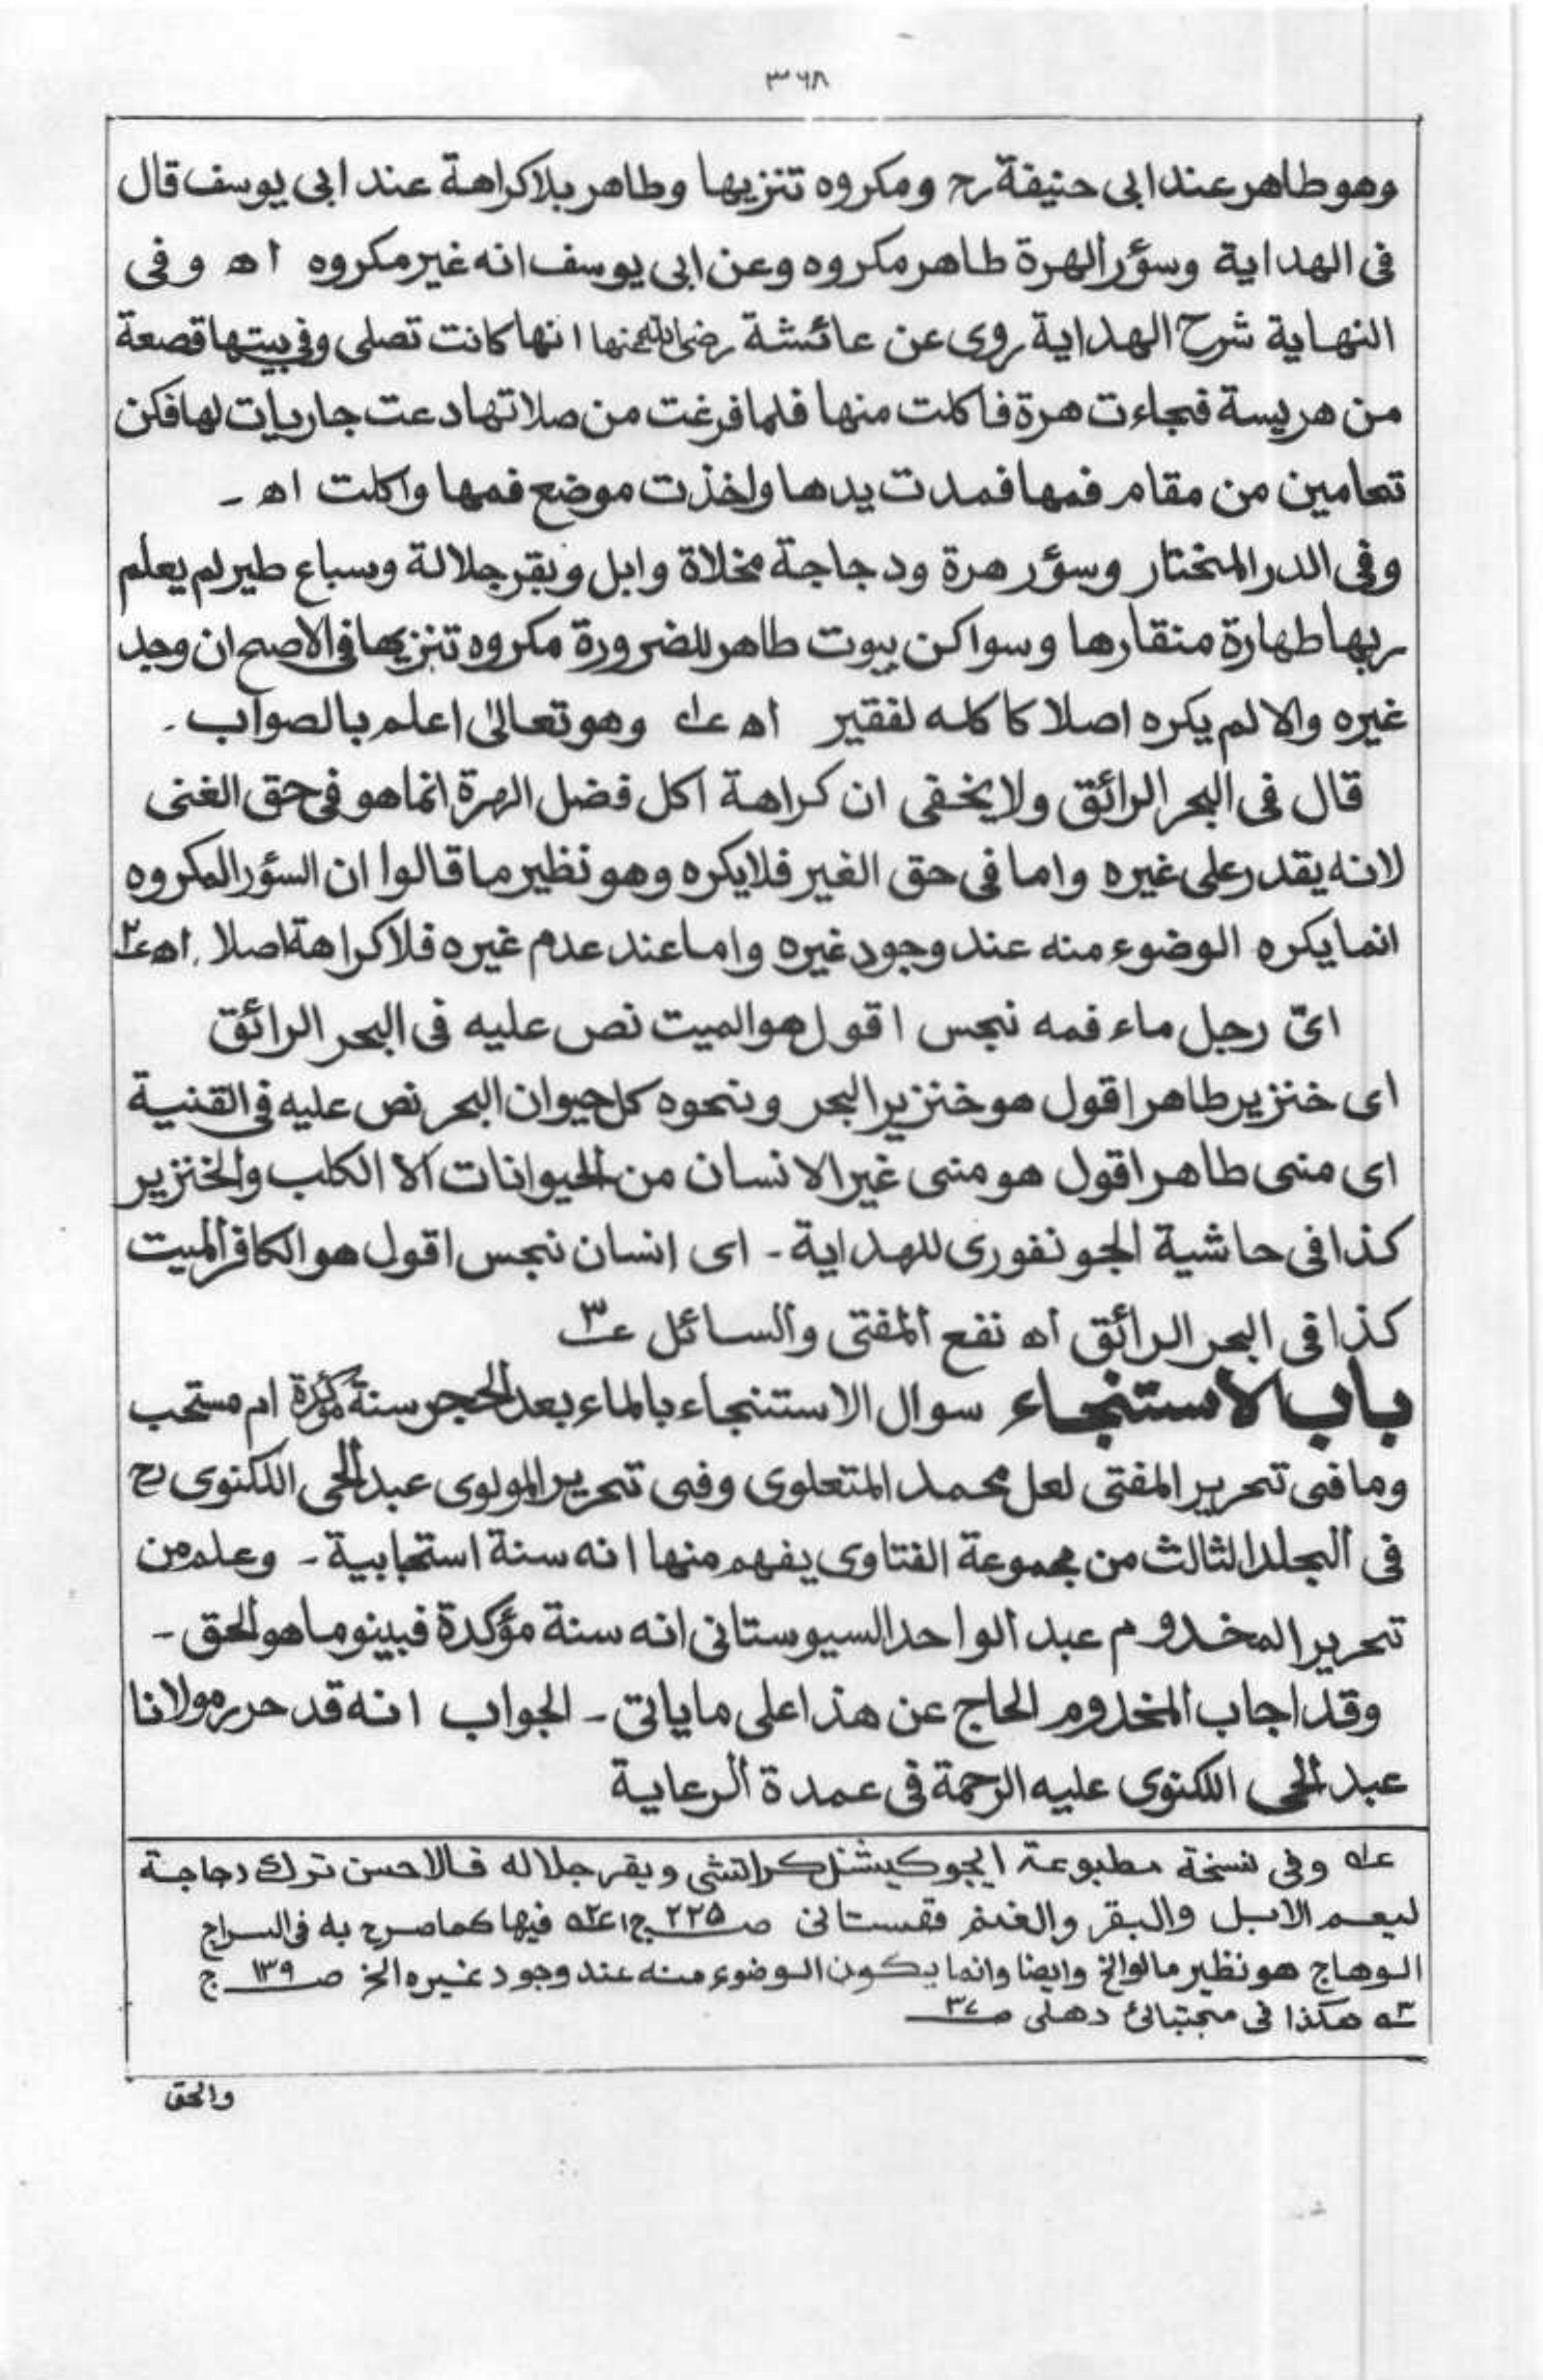 ۳۶۸
وهو طاهر عند ابی حنیفة رح ومکروه تنزیها وطاهر بلا کراهة عند ابی یوسف قال
فی الهدایة وسؤر الهرة طاهر مکروه وعن ابی یوسف انه غیر مکروه اه وفی
النهایة شرح الهدایة روی عن عائشة رضی الله عنها انها کانت تصلی وفی بیتها قصعة
من هریسة فجاءت هرة فاکلت منها فلما فرغت من صلاتها دعت جاریات لها فکن
تحامین من مقام فمها فمدت یدها واخذت موضع فمها واکلت اه ـ
وفی الدر المختار وسؤر هرة ودجاجة مخلاة وابل وبقر جلالة وسباع طیر لم یعلم
ربها طهارة منقارها وسواکن بیوت طاهر للضرورة مکروه تنزیها فی الاصح ان وجد
غیره والا لم یکره اصلا کاکله لفقیر اه عـ۱ وهو تعالیٰ اعلم بالصواب ۔
قال فی البحر الرائق ولا یخفی ان کراهة اکل فضل الهرة انما هو فی حق الغنی
لانه یقدر علی غیره واما فی حق الغیر فلایکره وهو نظیر ما قالوا ان السؤر المکروه
انما یکره الوضوء منه عند وجود غیره واما عند عدم غیره فلا کراهة اصلا اه عـ۲
ای رجل ماء فمه نجس اقول هو المیت نص علیه فی البحر الرائق
ای خنزیر طاهر اقول هو خنزیر البحر ونحوه کل حیوان البحر نص علیه فی القنیة
ای منی طاهر اقول هو منی غیر الانسان من الحیوانات الا الکلب والخنزیر
کذا فی حاشیة الجونفوری للهدایة ـ ای انسان نجس اقول هو الکافر المیت
کذا فی البحر الرائق اه نفع المفتی والسائل عـ۳
باب الاستنجاء سوال الاستنجاء بالماء بعد الحجر سنة مؤکدة ام مستحب
وما فی تحریر المفتی لعل محمد المتعلوی وفی تحریر المولوی عبد الحی اللکنوی رح
فی المجلد الثالث من مجموعة الفتاوی یفهم منها انه سنة استحبابیة ـ وعلم من
تحریر المخدوم عبد الواحد السیوستانی انه سنة مؤکدة فبینو ما هو الحق ـ
وقد اجاب المخدوم الحاج عن هذا علی ما یاتی ـ الجواب انه قد حرر مولانا
عبد الحی اللکنوی علیه الرحمة فی عمدة الرعایة
عـ۱ه وفی نسخة مطبوعة ایجوکیشنل کراتشی وبقر جلاله فالاحسن ترک دجاجة
لیعم الابل والبقر والغنم قهستانی صـ۲۲۵ ج۱ عـ۲ه فیها کما صرح به فی السراج
الوهاج هو نظیر ما قالوا الخ وایضا وانما یکون الوضوء منه عند وجود غیره الخ صـ۱۳۹ ج
عـ۳ه هکذا فی مجتبائی دهلی صـ۳۷
والحق